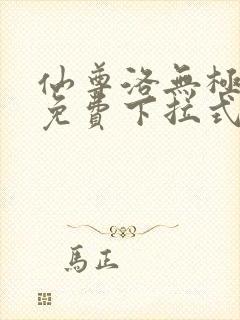 仙尊洛無極
免費下拉式
馬正